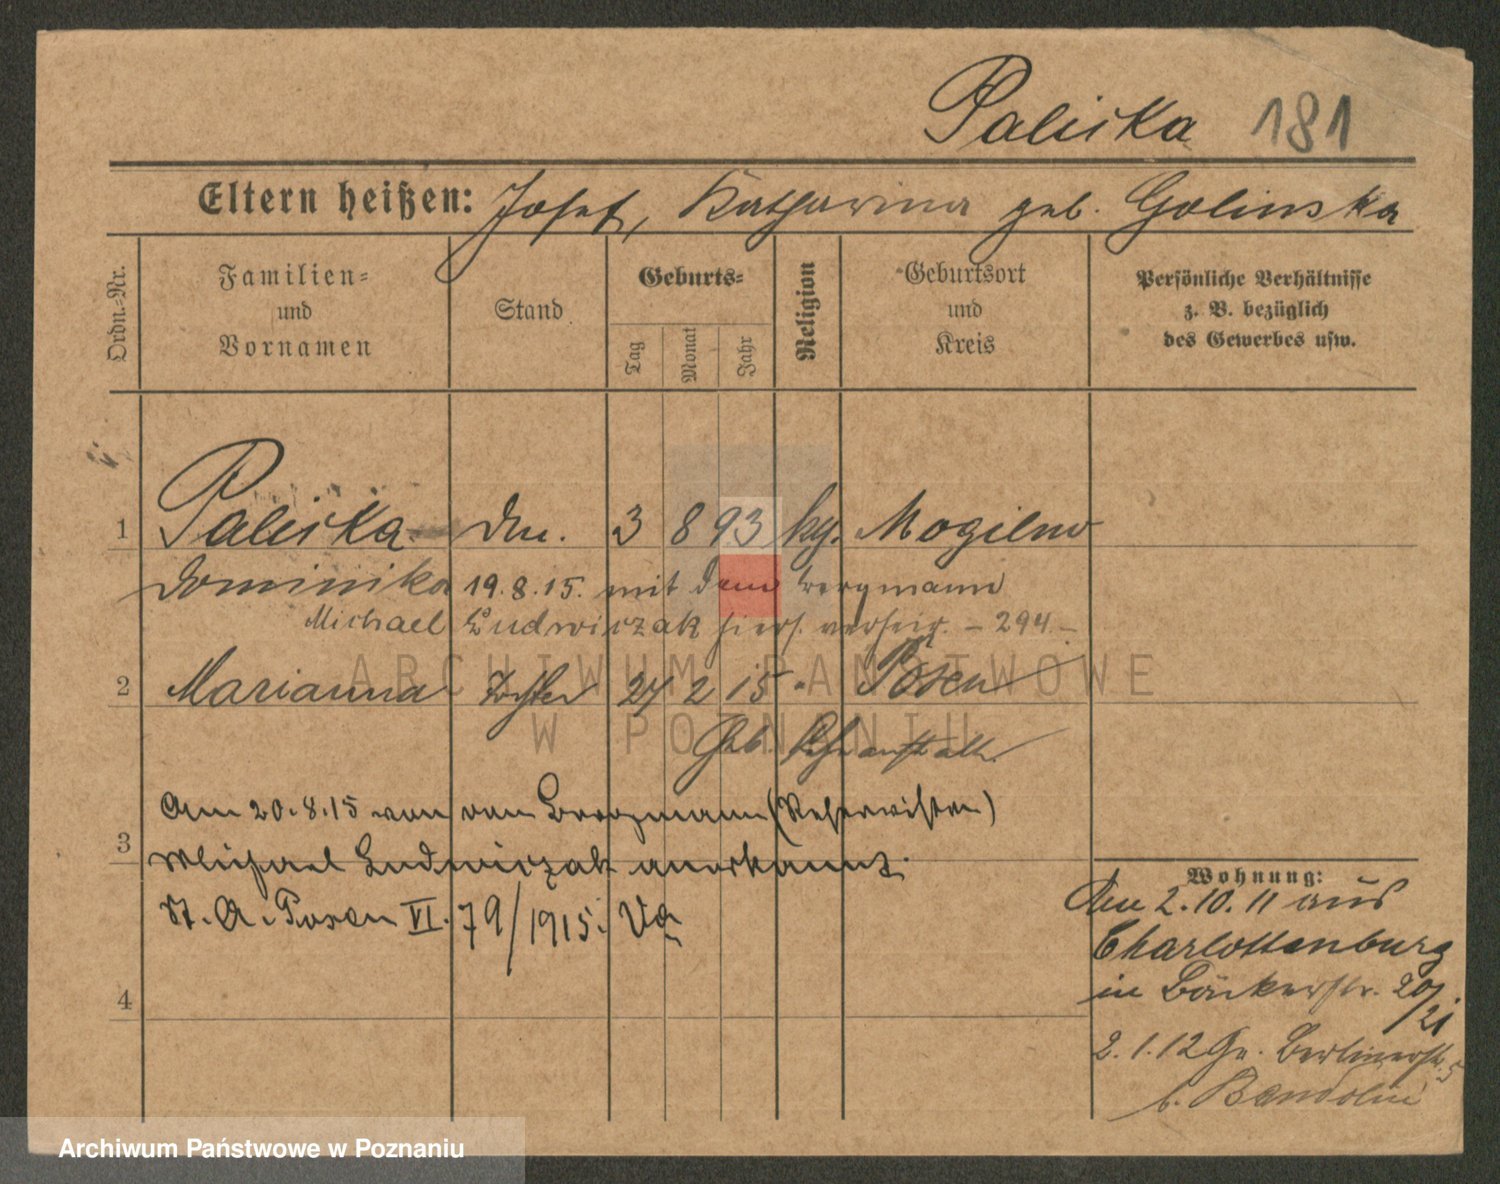 Paliska 181
Eltern heißen: Josef, Katharina geb. Golinska
Ordn.-Nr.
Familien-
und
Vornamen
Stand
Geburts-
Tag
Monat
Jahr
Religion
Geburtsort
und
Kreis
Persönliche Verhältnisse
z. B. bezüglich
des Gewerbes usw.
1 Paliska 3 8 93 Mogilno
Dominika 19.8.15. mit dem
Michael Ludwiczak hiers. verheir. - 294 -
2 Marianna Tochter 27 2 15 " Posen
Geb.
Am 20.8.15 von
3 Michael Ludwiczak anerkannt.
St. A. Posen VI. 79/1915.
4
Wohnung:
2.10.11 aus
Charlottenburg
in Bäckerstr. 20/21
2.1.12 Gr. Berlinerstr. 5
b.
ARCHIWUM PAŃSTWOWE
W POZNANIU
Archiwum Państwowe w Poznaniu